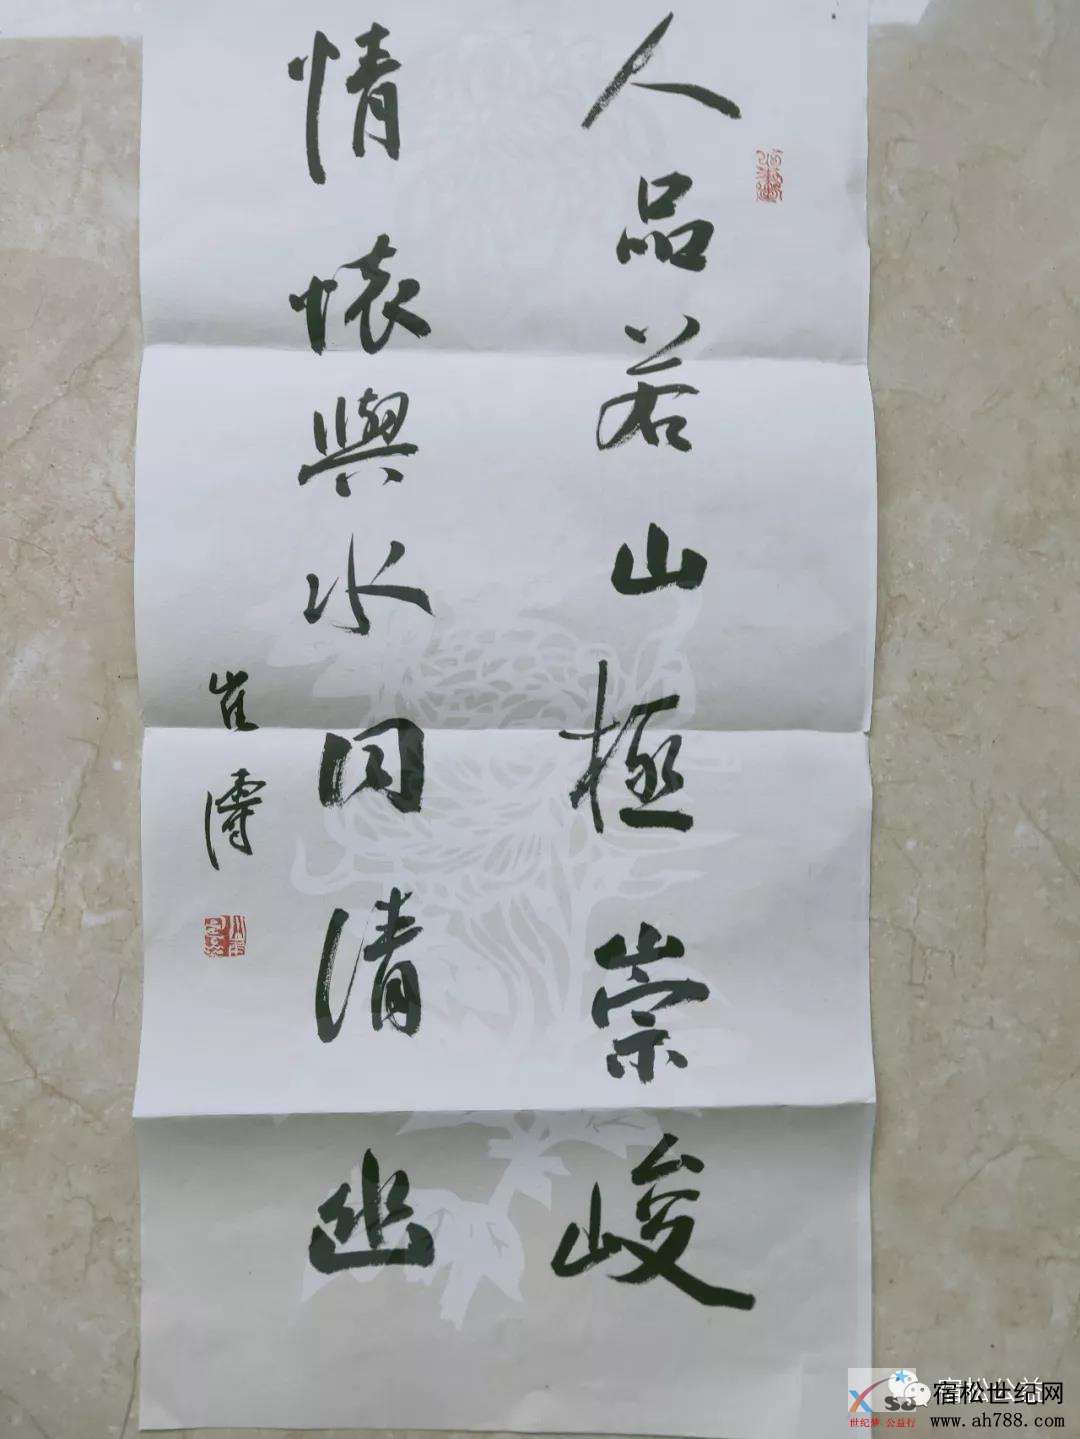 人品若山極崇峻
情懷與水同清幽
宿松公益
宿松世纪网
世纪梦 公益行
www.ah788.com